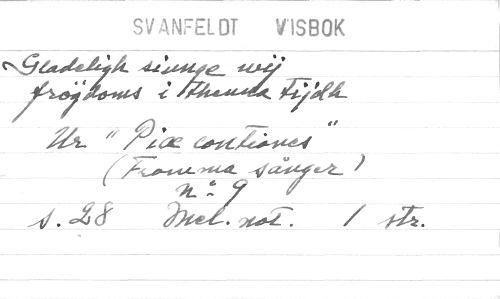 SVANFELDT VISBOK
Gladeligh siunge wij
frögdoms i thenna tijdh
Ur "Piæ contiones"
(Fromma sånger)
n:o 9
s. 28 Mel. not. 1 str.